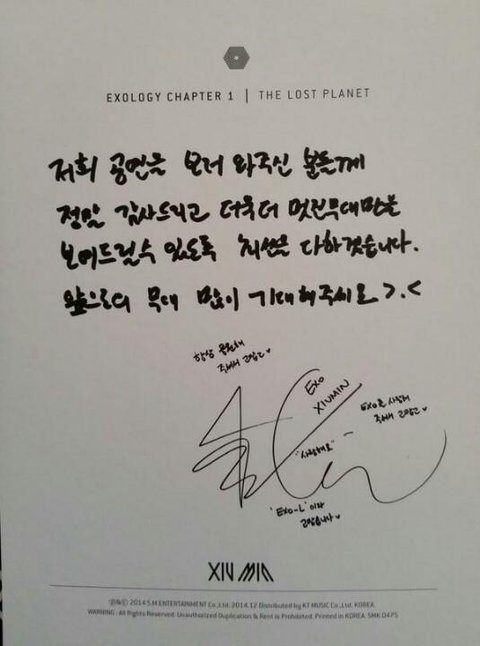 EXOLOGY CHAPTER 1 | THE LOST PLANET
저희 공연을 보러 와주신 분들께
정말 감사드리고 더욱더 멋진무대만을
보여드릴수 있도록 최선을 다하겠습니다.
앞으로의 무대 많이 기대해주시오 >.<
항상 응원해
주셔서 고맙고♥
EXO
XIUMIN
EXO를 사랑해
주셔서 고맙고♥
"사랑해요"
'EXO-L'이라
고맙습니다♥
XIUMIN
Ⓟ&© 2014 S.M.ENTERTAINMENT Co.,Ltd. 2014.12 Distributed by KT MUSIC Co.,Ltd. KOREA.
WARNING : All Rights Reserved. Unauthorized Duplication & Rent is Prohibited. Printed in KOREA. SMK 0475